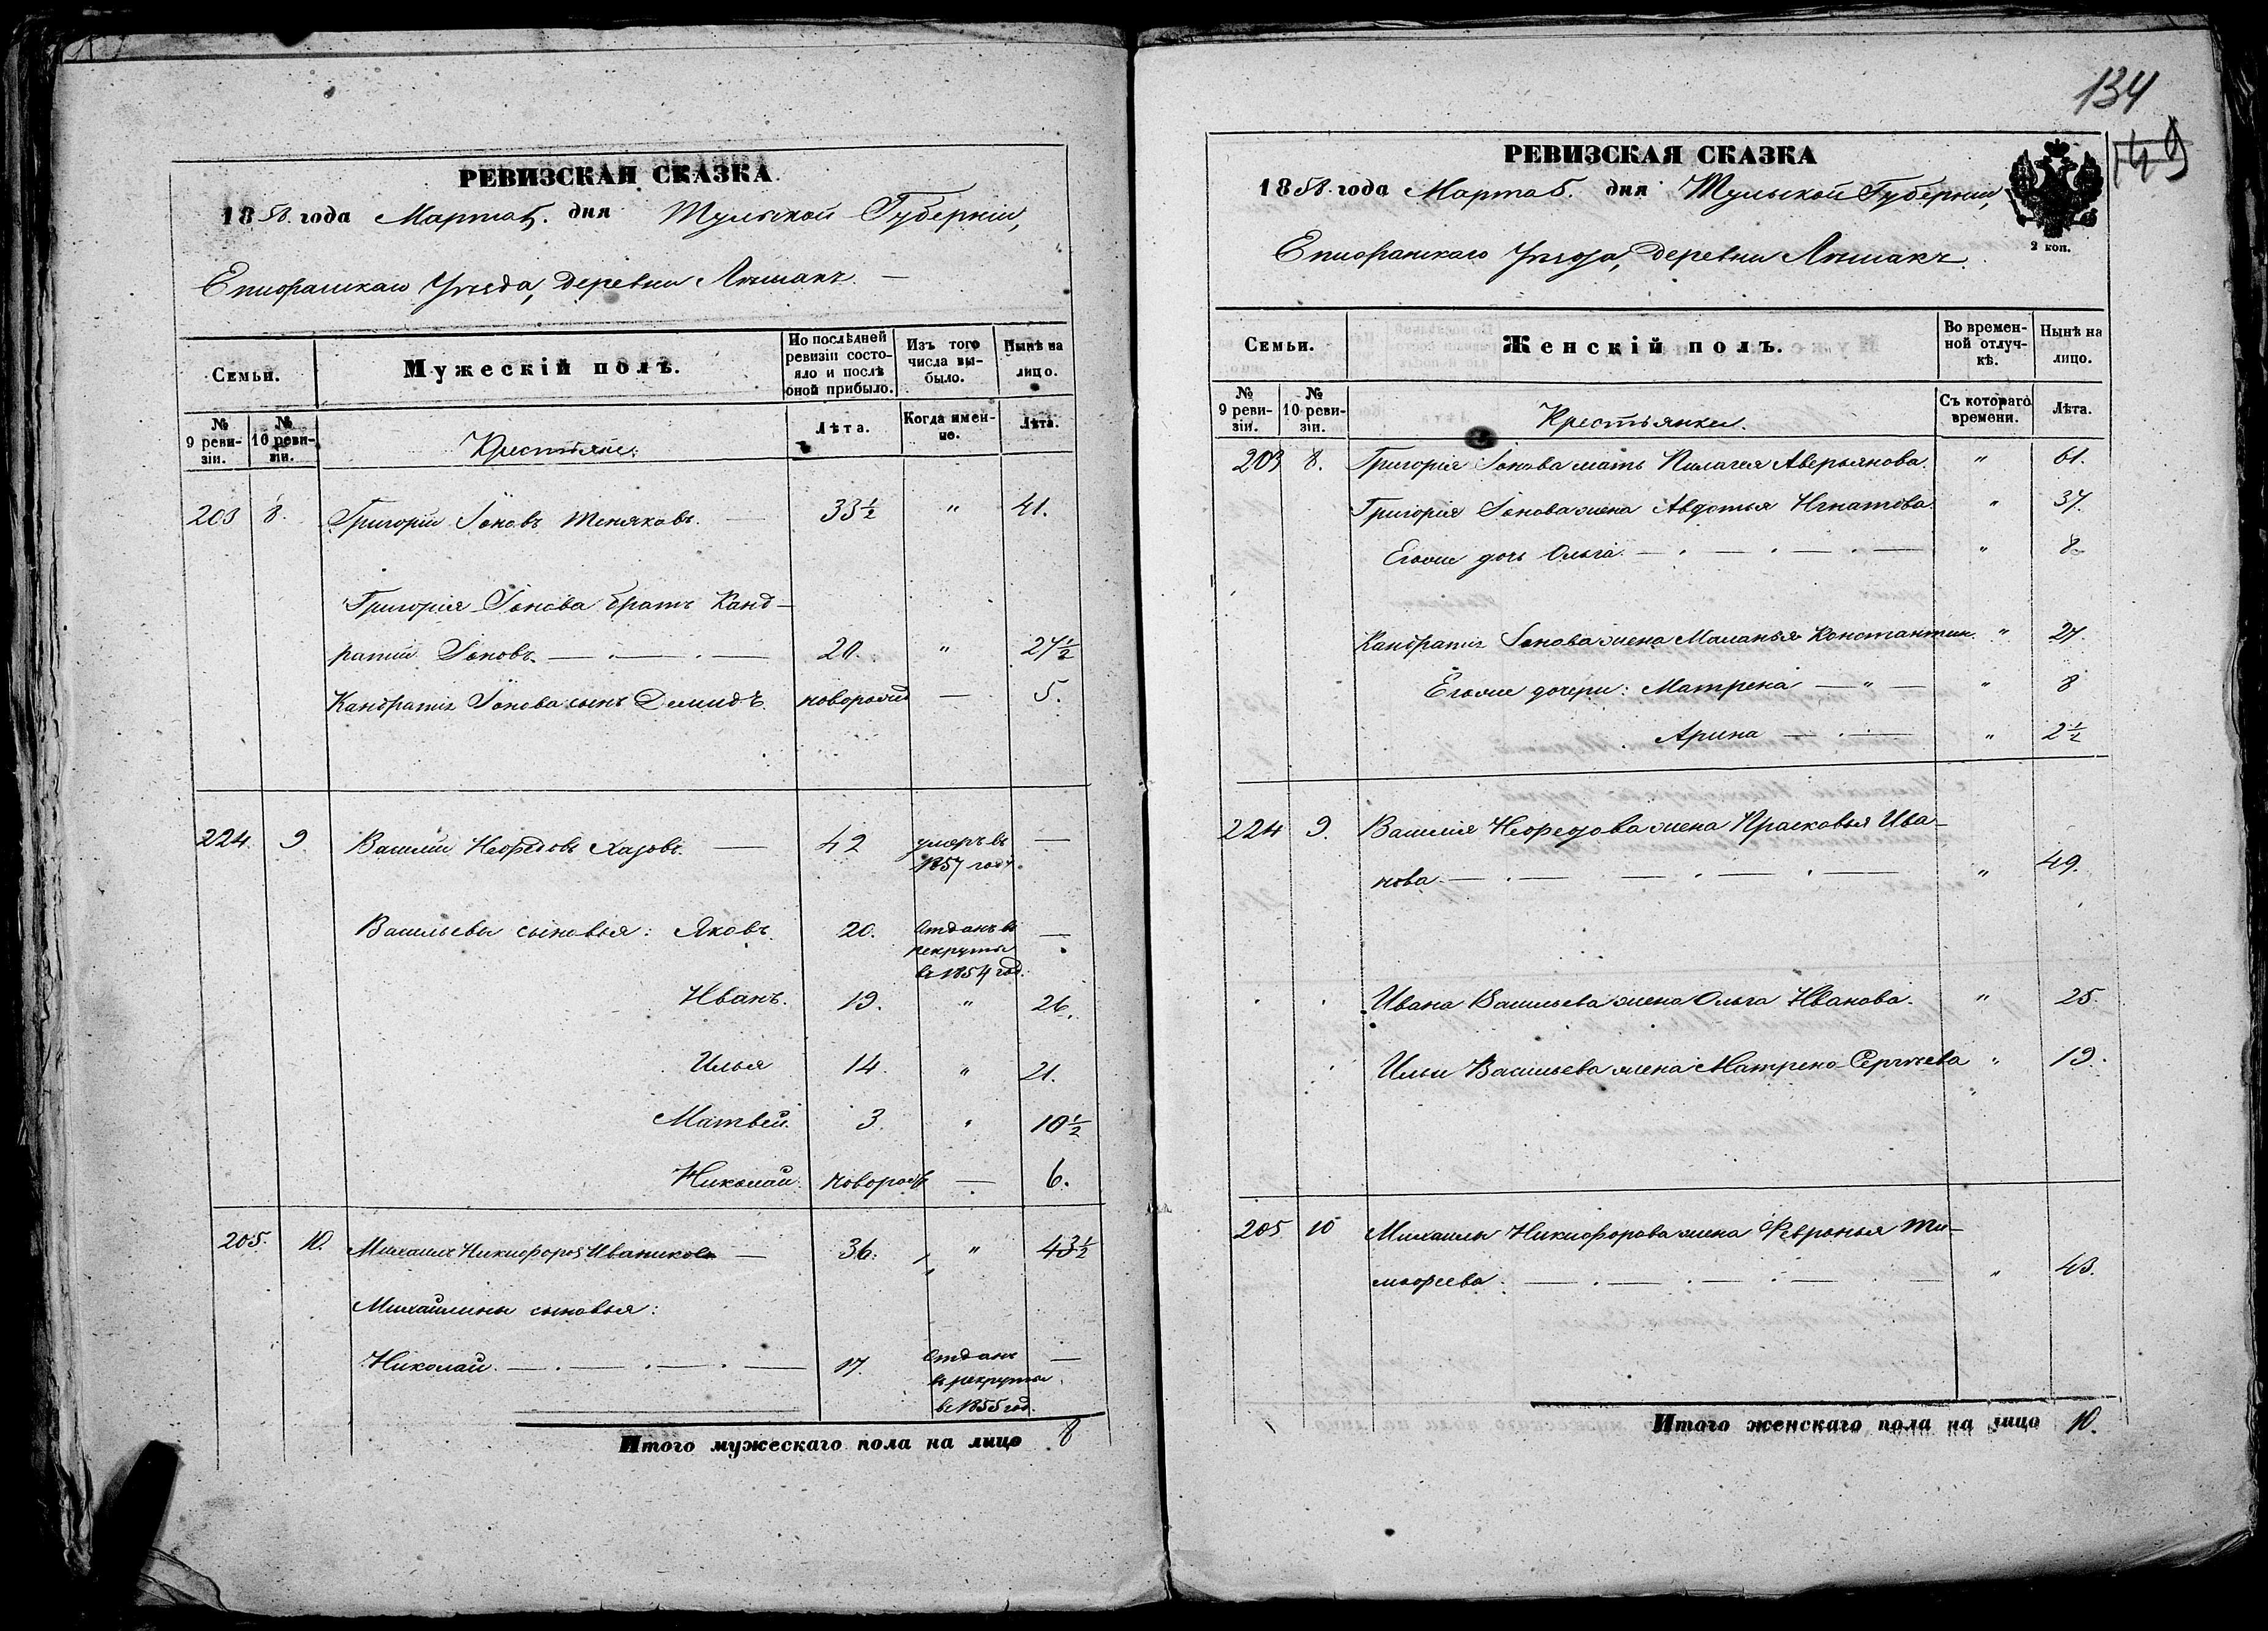 РЕВИЗСКАЯ СКАЗКА
1858 года Марта 5. дня Тульской Губерніи,
Епифанскаго Уѣзда, деревни
Семьи.
Мужескій полъ.
По послѣдней ревизіи состояло и послѣ оной прибыло.
Изъ того числа выбыло.
Нынѣ на лицо.
№ 9 ревизіи.
№ 10 ревизіи.
Крестьяне:
Лѣта.
Когда именно.
Лѣта.
203 8. Григорій Іоновъ Теняковъ. — 33½ " 41.
Григорія Іонова братъ Канд-
ратій Іоновъ. — · — · — 20. " 27½
Кандратія Іонова сынъ Демидъ. новорожд — 5.
224. 9 Василій Нефедовъ — 42 умеръ въ 1857 году. —
Васильевы сыновья: Яковъ. 20. Отданъ въ рекруты въ 1854 год. —
Иванъ. 19. " 26.
Илья 14. " 21.
Матвей. 3. " 10½
Николай. новорож — 6.
205. 10. Михаилъ Никифоров Иваников — 36. " 43½
Михайлины сыновья:
Николай. — · — · — · — 17. Отданъ въ рекруты въ 1855 год. —
Итого мужескаго пола на лицо 8
134
149
РЕВИЗСКАЯ СКАЗКА
1858 года Марта 5. дня Тульской Губерніи,
2 коп.
Епифанскаго Уѣзда, деревни
Семьи.
Женскій полъ.
Во временной отлучкѣ.
Нынѣ на лицо.
№ 9 ревизіи.
№ 10 ревизіи.
Крестьянки.
Съ котораго времени.
Лѣта.
203 8. Григорія Іонова мать Пилагея Аверьянова. " 61.
Григорія Іонова жена Авдотья Игнатова. " 37.
Егоже дочь Ольга. — · — · — · — " 8
Кандратія Іонова жена Маланья Константин. " 27.
Егоже дочери: Матрена — " — " 8
Арина — · — " 2½
224 9. Василія Нефедова жена Прасковья Ива-
нова — · — — · — · — " 49.
Ивана Васильева жена Ольга Иванова. " 25.
Ильи Васильева жена Матрена Сергѣева " 19.
205 10 Михаилы Никифорова жена Февронья Ти-
мофеева. — · — · — · — " 43.
Итого женскаго пола на лицо 10.